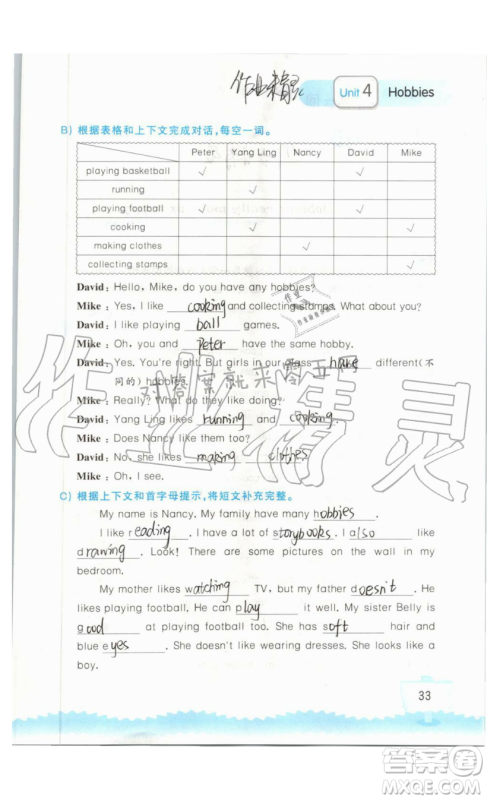 作业精灵
Unit 4 Hobbies
B) 根据表格和上下文完成对话,每空一词。
Peter Yang Ling Nancy David Mike
playing basketball ✓ ✓
running ✓
playing football ✓ ✓ ✓
cooking ✓ ✓
making clothes ✓
collecting stamps ✓
David: Hello, Mike, do you have any hobbies?
Mike: Yes, I like cooking and collecting stamps. What about you?
David: I like playing ball games.
Mike: You and Peter have the same hobby.
David: Yes. You're right. But girls in our class have different(不
同的) hobbies.
Mike: Really? What do they like doing?
David: Yang Ling likes running and cooking.
Mike: Does Nancy like them too?
David: No, she likes making clothes.
Mike: Oh, I see.
C) 根据上下文和首字母提示,将短文补充完整。
My name is Nancy. My family have many hobbies.
I like reading. I have a lot of storybooks. I also like
drawing. Look! There are some pictures on the wall in my
bedroom.
My mother likes watching TV, but my father doesn't. He
likes playing football. He can play it well. My sister Belly is
good at playing football too. She has soft hair and
blue eyes. She doesn't like wearing dresses. She looks like a
boy.
33
作业精灵
答案就来零五
答案圈
MXQE.COM